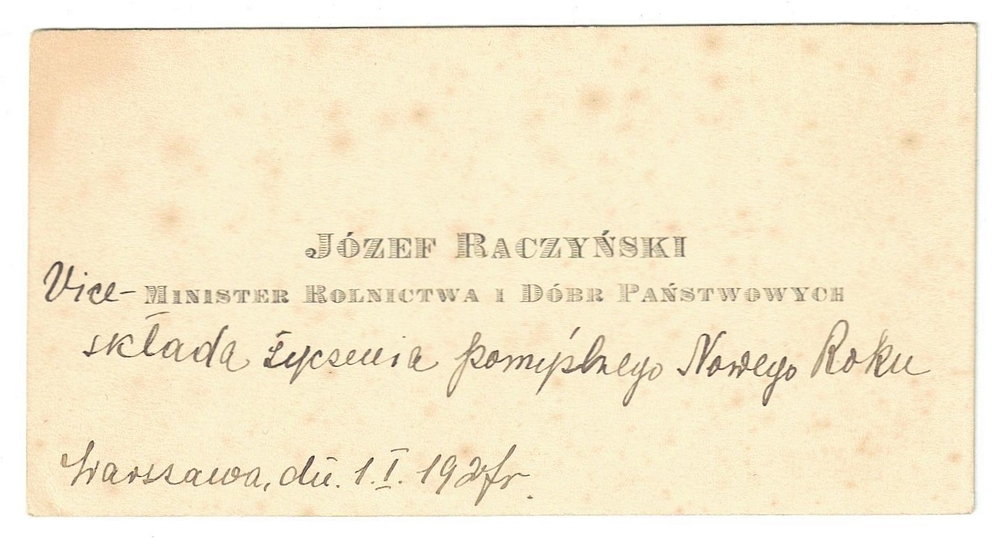 JÓZEF RACZYŃSKI
Vice-MINISTER ROLNICTWA I DÓBR PAŃSTWOWYCH
składa życzenia pomyślnego Nowego Roku
Warszawa, dn. 1.I. 1927r.